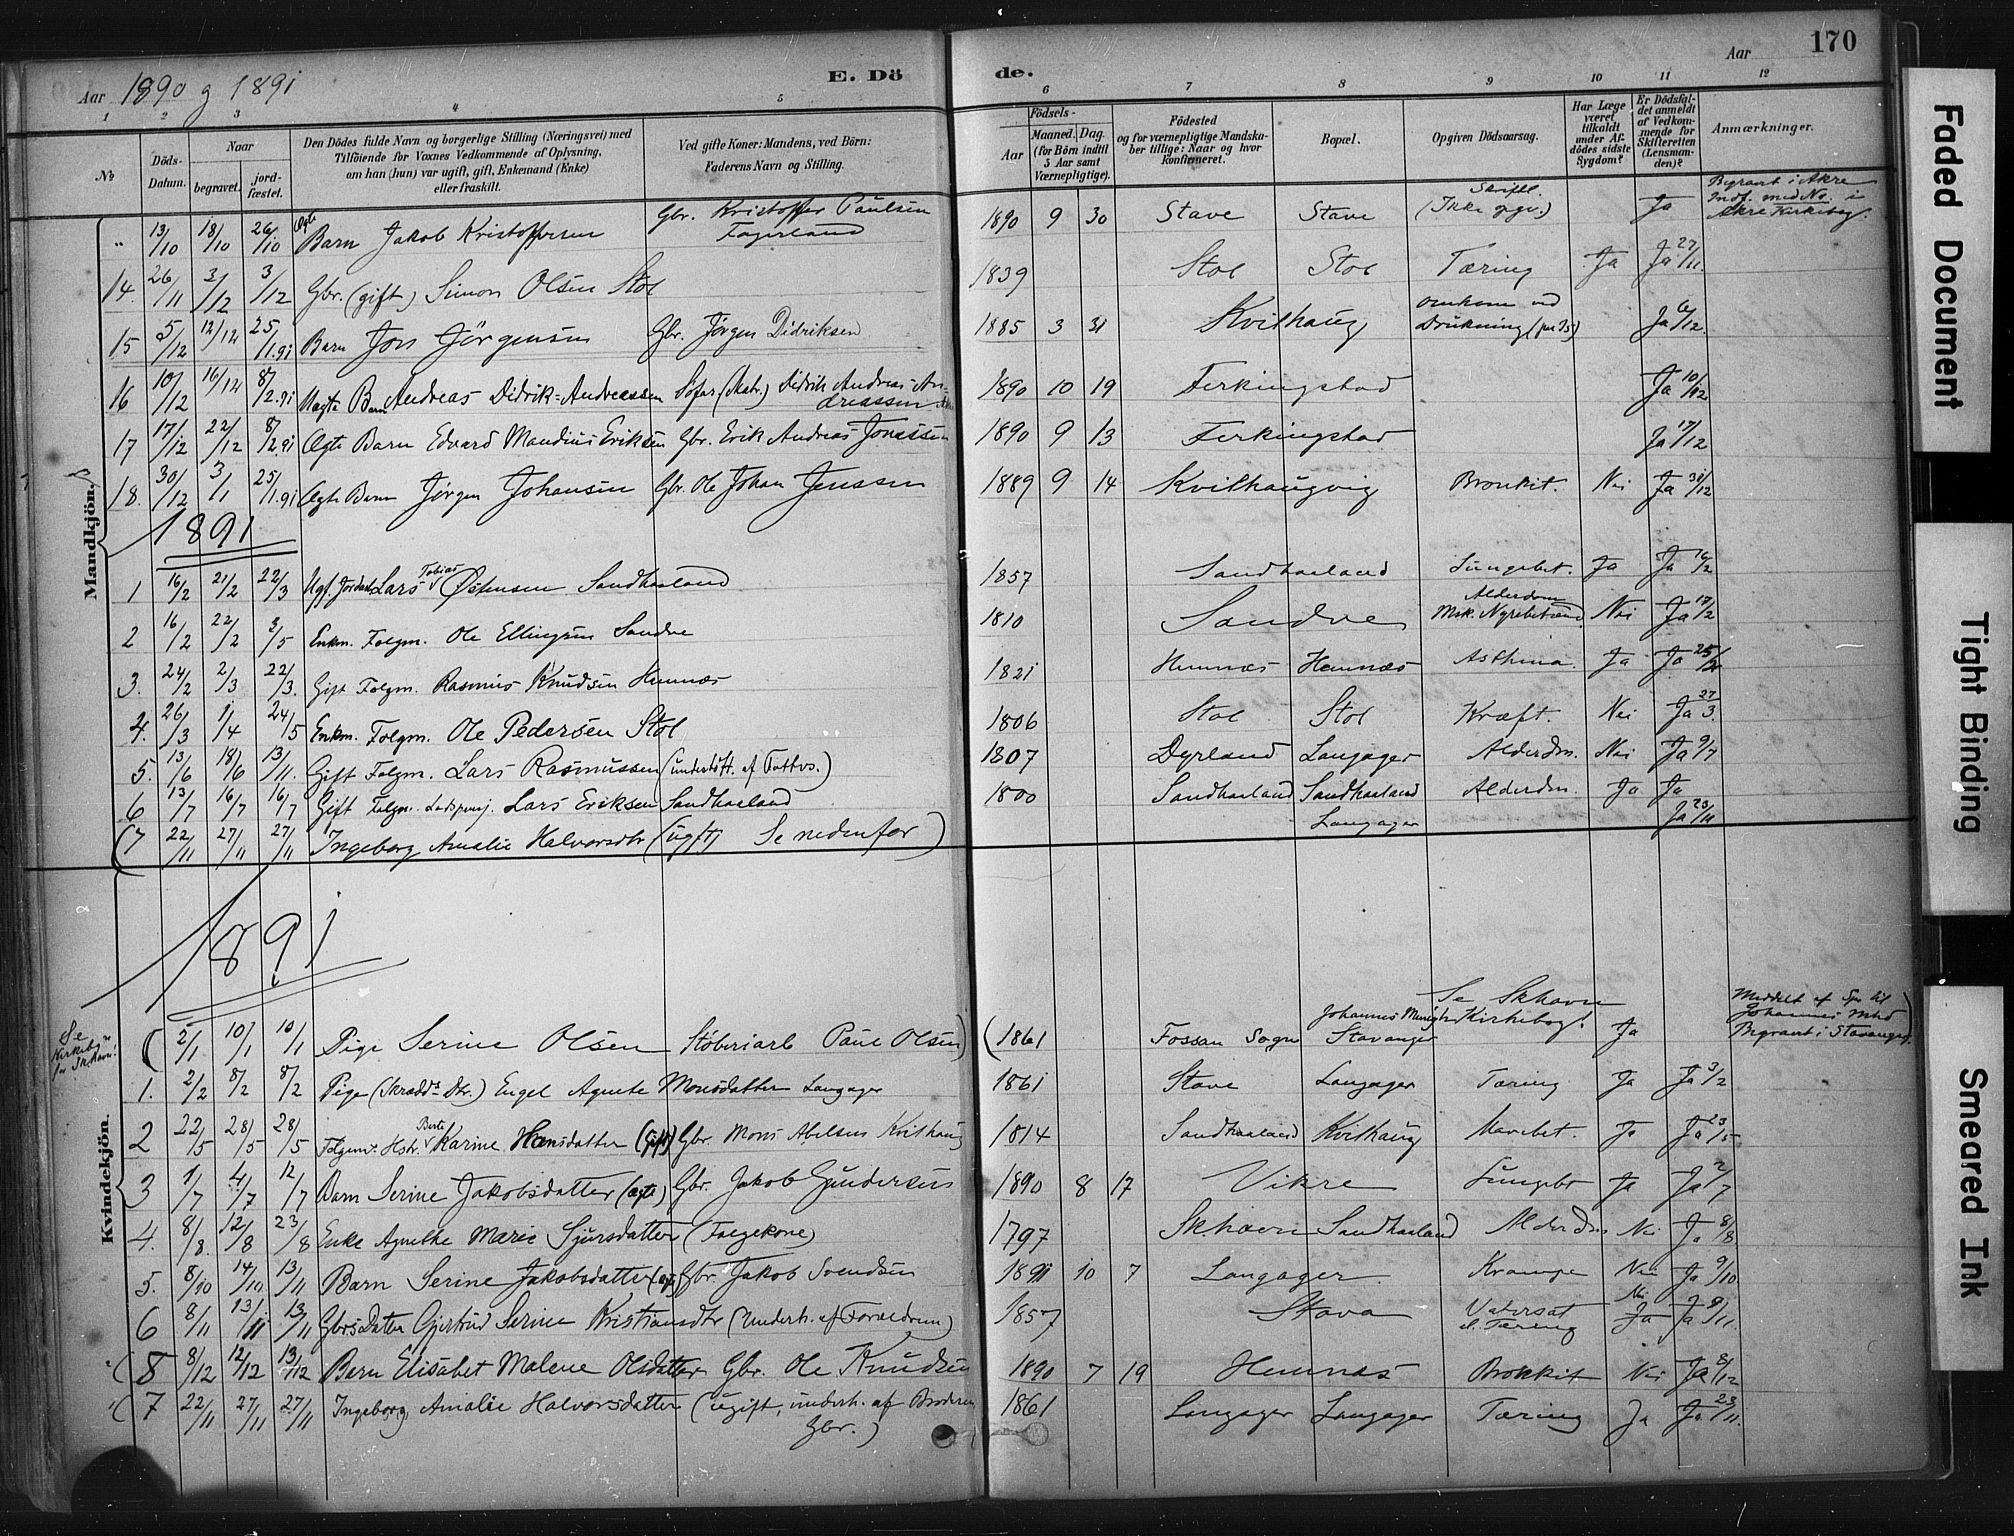 Aar 1890 g 1891 E. Dö de. Aar 170
1 2 3 4 5 6 7 8 9 10 11 12
No
Döds-Datum.
Naar
begravet.
jord-fæstet.
Den Dödes fulde Navn og borgerlige Stilling (Næringsvei) med
Tilföiende for Voxnes Vedkommende af Oplysning,
om han (hun) var ugift, gift, Enkemand (Enke)
eller fraskilt.
Ved gifte Koner: Mandens, ved Börn:
Faderens Navn og Stilling.
Födsels-
Aar
Maaned. Dag.
(for Börn indtil
5 Aar samt
Værnepligtige).
Födested
og for værnepligtige Mandska-
ber tillige: Naar og hvor
konfirmeret.
Bopæl.
Opgiven Dödsaarsag.
Har Læge
været
tilkaldt
under Af-
dödes sidste
Sygdom?
Er Dödsfal-
det anmeldt
af Vedkom-
mende for
Skifteretten
(Lensman-
den)?
Anmærkninger.
Mandkjön.
" 13/10 18/10 26/10 Ægte Barn Jakob Kristoffersen Gbr. Kristoffer Paulsen Fagerland 1890 9 30 Stave Stave Skriftl. (Ikke opgiv.) Ja Begravt i Akre Indf. med No. i Akre Kirkebog.
14. 26/11 3/12 3/12 Gbr. (gift) Simon Olsen Stol 1839 Stol Stol Tæring Ja Ja 27/11.
15 5/12 12/12 25/1.91 Barn Jon Jørgensen Gbr. Jørgen Didriksen 1885 3 31 Kvilhaug Omkom ved Drukning Ja 6/12.
16 10/12 16/12 8/2.91 Uægte Barn Andreas Didrik-Andreassen Søfar. Didrik Andreas Andreassen 1890 10 19 Ferkingstad Ja 10/12
17 17/12 22/12 8/2.91 Ægte Barn Edvard Mandius Eriksen Gbr. Erik Andreas Jonassen 1890 9 13 Ferkingstad Ja 17/12
18. 30/12 3/1 25/1.91 Ægte Barn Jørgen Johansen Gbr. Ole Johan Jenssen 1889 9 14 Kvilhaugvig Bronkit. Nei Ja 31/12
1891
1 16/2 21/2 22/3 Ugf. Lars Tobias Østensen Sandhaaland 1857 Sandhaaland Lungebet. Ja Ja 16/2
2 16/2 22/2 3/5 Enkm. Folgm. Ole Ellingsen Sandve 1810 Sandve Alderdom Msk. Nyrebetænd. Nei Ja 17/2
3. 24/2 2/3 22/3. Gift Folgm. Rasmus Knudsen Hemnæs 1821 Hemnæs Hemnæs Asthma. Ja Ja 25/2
4. 26/3 1/4 24/5 Enkm. Folgm. Ole Pedersen Stol 1806 Stol Stol Kræft. Nei Ja 27/3.
5. 13/6 18/6 13/11. Gift Folgm. Lars Rasmussen (understøtt. af Fattvs.) 1807 Dyrland Langager Alderdm. Nei Ja 9/7
6 13/7 16/7 16/7 Gift Folgm. Lars Eriksen Sandhaaland 1800 Sandhaaland Sandhaaland Alderdm. Ja Ja
(7 22/11 27/11 27/11 Ingeborg Amalie Halvorsdtr (ugift) Se nedenfor) Langager Ja 23/11
1891
Kvindekjön.
Se Kirkebog for Sk.havn!
( 2/1 10/1 10/1 Pige Serine Olsen Støberiarb Paul Olsen) (1861 Fossan Sogn Johannes Menighed Stavanger Se Skhavn Kirkebog. Ja Meddelt af Spr til Johannes Mhd Begravt i Stavanger.)
1. 2/2 8/2 8/2 Pige (Skrædd Dtr.) Engel Agnete Monsdatter Langager 1861 Stave Langager Tæring Ja Ja 3/2
2 22/5 28/5 28/5 Folgem. Hstr. Berte Karine Hansdatter (Gift) Gbr. Mons Abelsen Kvilhaug 1814 Sandhaaland Kvilhaug Mavebet. Ja Ja 23/5
3 1/7 4/7 12/7 Barn Serine Jakobsdatter (ægte) Gbr. Jakob Gundersen 1890 8 17 Vikre Lungebt Ja Ja 2/7
4. 8/8. 12/8 23/8 Enke Agnethe Marie Sjursdatter (Folgekone) 1797 Sk.havn Sandhaaland Alderdm Nei Ja 8/8
5. 8/10 14/10 13/11 Barn Serine Jakobsdatter (æg) Gbr. Jakob Svendsen 1891 10 7 Langager. Krampe Nei Ja 9/10
6 8/11 13/11 13/11 Gbrs Datter Gjertrud Serine Kristiansdtr (Underh. af Forældrene) 1857 Stava Vatersot el. Tæring Nei Ja Ja 9/11.
(8 8/12 12/12 13/12 Barn Elisabet Malene Olsdatter Gbr. Ole Knudsen 1890 7 19 Hemnæs Brokkit Nei Ja 8/12
(7 22/11 27/11 27/11 Ingeborg Amalie Halvorsdatter (ugift, underh. af Broderen Gbr.) 1861 Langager Langager Tæring Ja Ja 23/11.
Faded Document
Tight Binding
Smeared Ink